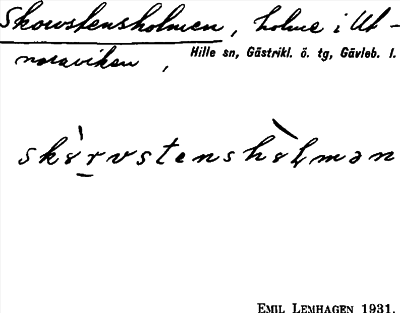 Skowstensholmen, holme i Ut-
noraviken,
Hille sn, Gästrikl. ö. tg, Gävleb. l.
skɤ̀r̲vstenshɤ̀lmən
EMIL LEMHAGEN 1931.